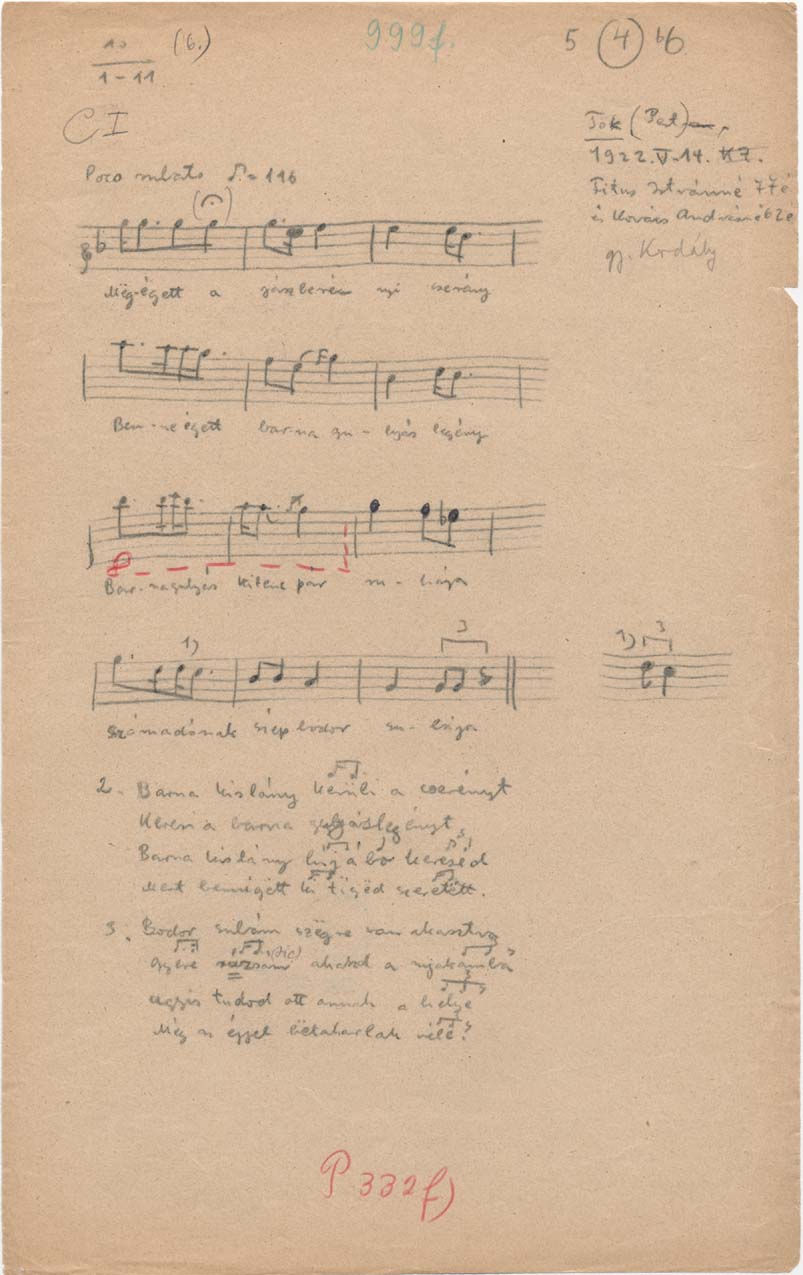 10
1-11
(6.)
999f.
5 (4) b6
C I
Tök (Pest),
1922. V. 14. K. Z.
Titus Istvánné 77é
és Kovács Andrásné 62é
gy. Kodály
Poco rubato = 116
Mëg-égett a jászberén nyi cserény
Ben-ne égett bar-na gu-lyás legény
Bar-nagulyás kilenc pár ru-hája
1) 3
1) 3
számadónak szép bodor su-bája
2. Barna kislány kerüli a cserényt
Keresi a barna gulyáslegényt,
Barna kislány hijábo keresëd
Mert bennégëtt ki tigëd szeretëtt.
3. Bodor subám szëgre van akasztva
gyere rózsám (sic) akaszd a nyakamba
ugyis tudod ott annak a helye
Még az éjjel bëtakarlak véle?
P 332f)